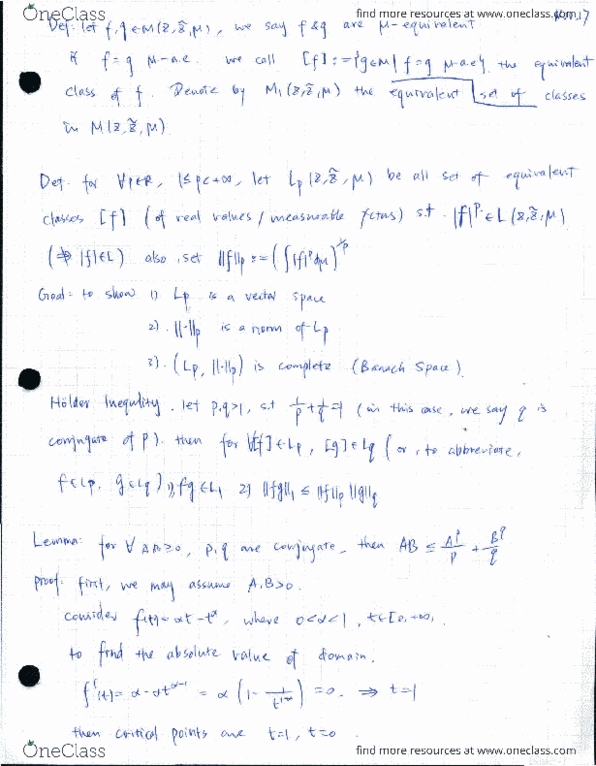 OneClass find more resources at www.oneclass.com
Def: let f,g ∈ M(Z, Z̃, μ), we say f & g are μ-equivalent
if f = g μ-a.e. we call [f] := {g∈M | f = g μ-a.e}, the equivalent
class of f. Denote by M₁(Z,Z̃,μ) the equivalent set of classes
in M(Z,Z̃,μ)
Def. for ∀p∈R, 1≤p<+∞, let Lp(Z,Z̃,μ) be all set of equivalent
classes [f] (of real values/measureable fctns) s.t. |f|^p ∈ L(Z,Z̃,μ)
(⇏ |f|∈L) also, set ||f||p := (∫|f|^p dμ)^1/p
Goal: to show 1) Lp is a vector space
2). ||·||p is a norm of Lp
3). (Lp, ||·||p) is complete (Banach Space).
Hölder Inequality. let p,q>1, s.t 1/p + 1/q = 1 (in this case, we say q is
conjugate of p). then for ∀[f]∈Lp, [g]∈Lq (or, to abbreviate,
f∈Lp, g∈Lq) 1) fg∈L₁ 2) ||fg||₁ ≤ ||f||p ||g||q
Lemma: for ∀ A,B≥0, p,q are conjugate, then AB ≤ A^p/p + B^q/q
proof: first, we may assume A,B>0.
consider f(t)=αt-t^α, where 0<α<1, t∈[0,+∞,
to find the absolute value of domain.
f'(t)= α-αt^α-1 = α(1- 1/t^1-α) =0. ⇒ t=1
then critical points are t=1, t=0.
OneClass find more resources at www.oneclass.com